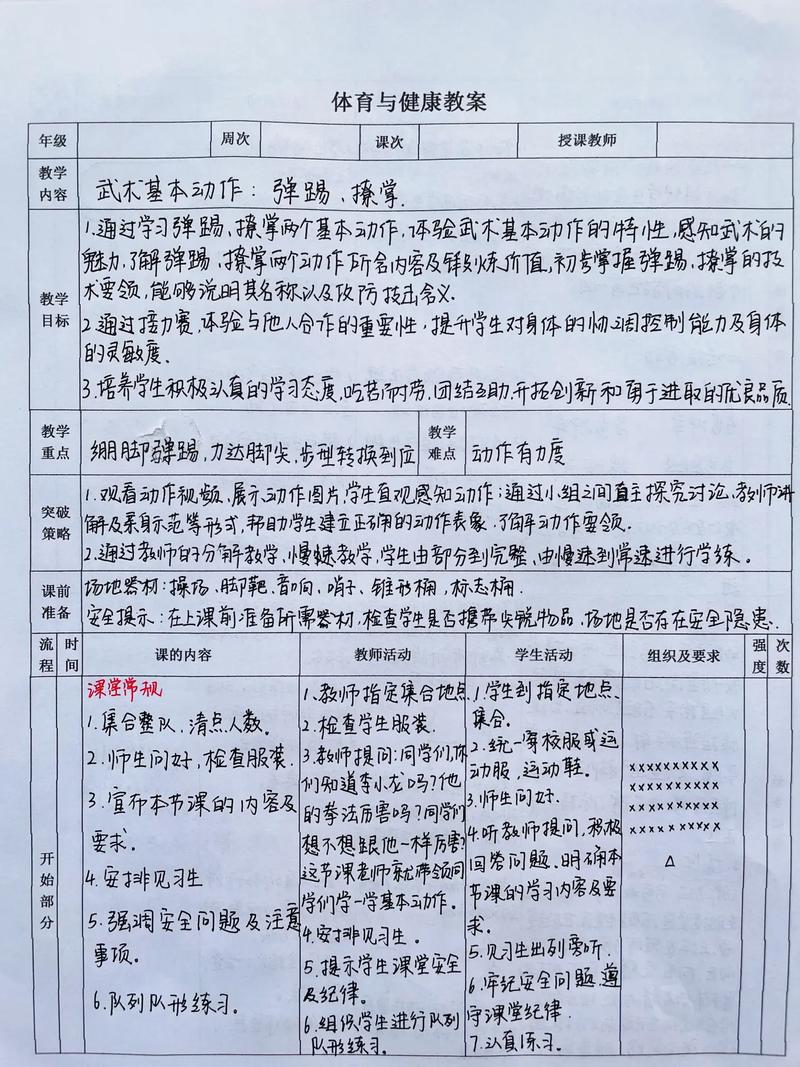 体育与健康教案
年级 周次 课次 授课教师
教学内容 武术基本动作：弹踢、撩掌.
教学目标
1.通过学习弹踢、撩掌两个基本动作,体验武术基本动作的特性,感知武术的
魅力,了解弹踢、撩掌两个动作所含内容及锻炼价值,初步掌握弹踢、撩掌的技
术要领,能够说明其名称以及攻防技击含义.
2.通过接力赛,体验与他人合作的重要性,提升学生对身体的协调控制能力及身体
的灵敏度.
3.培养学生积极认真的学习态度,吃苦耐劳,团结互助,开拓创新和勇于进取的优良品质.
教学重点 绷脚弹踢,力达脚尖,步型转换到位 教学难点 动作有力度
突破策略
1.观看动作视频、展示动作图片,学生直观感知动作;通过小组之间自主探究讨论、教师讲
解及亲身示范等形式,帮助学生建立正确的动作表象.了解动作要领.
2.通过教师的分解教学,慢速教学,学生由部分到完整、由慢速到常速进行学练.
课前准备
场地器材:操场、脚靶、音响、哨子、锥形桶,标志桶.
安全提示:在上课前准备所需器材,检查学生是否携带尖锐物品,场地是否存在安全隐患.
流程 时间 课的内容 教师活动 学生活动 组织及要求 强度 次数
开始部分
课堂常规
1.集合整队、清点人数。
2.师生问好,检查服装.
3.宣布本节课的内容及
要求.
4.安排见习生
5.强调安全问题及注意
事项。
6.队列队形练习.
1.教师指定集合地点
2.检查学生服装.
3.教师提问:同学们,你
们知道李小龙吗?他
的拳法厉害吗?同学们
想不想跟他一样厉害?
这节课老师就带领同
学们学一学基本动作。
4.安排见习生.
5.提示学生课堂安全
及纪律.
6.组织学生进行队列
队形练习.
1.学生到指定地点
集合.
2.统一穿校服或运
动服,运动鞋.
3.师生问好.
4.听教师提问,积极
回答问题、明确本
节课的学习内容及要
求.
5.见习生出列旁听.
6.牢记安全问题,遵
守课堂纪律.
7.认真练习.
xxxxxxxxxx
xxxxxxxxxx
xxxxxxxxxx
xxxxxxxxxx
△